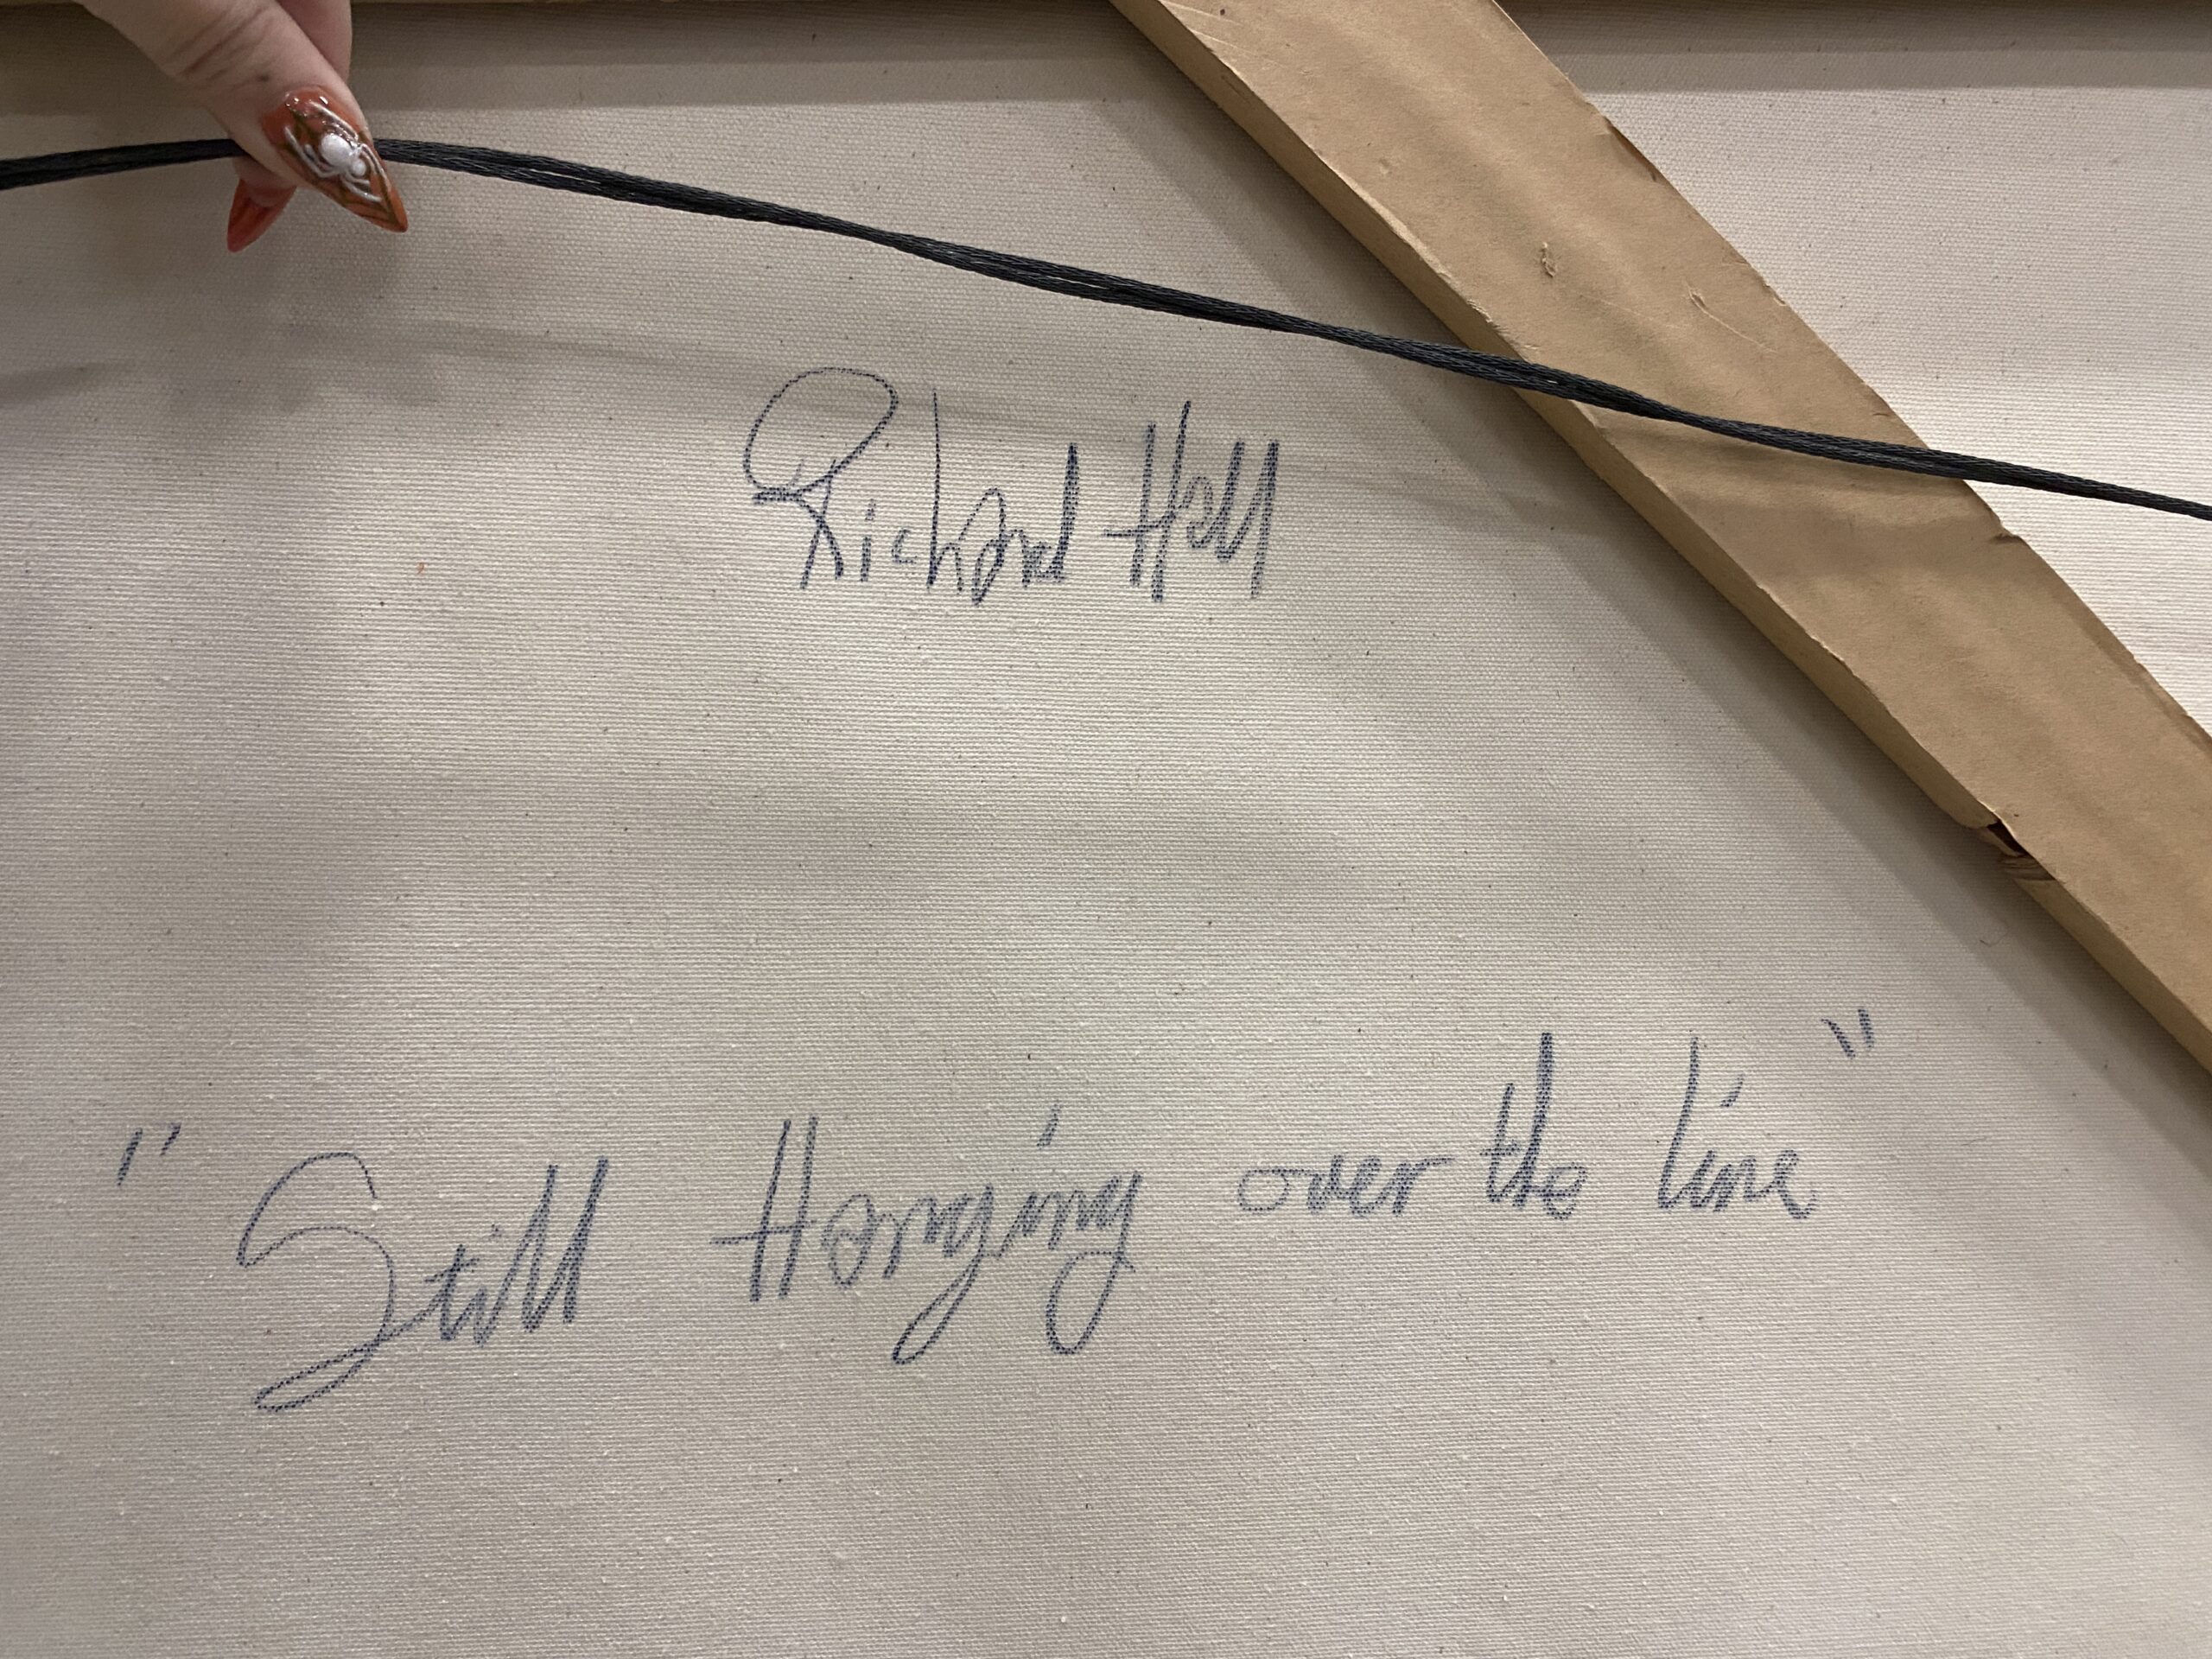 Richard Hall
"Still Hanging over the line"